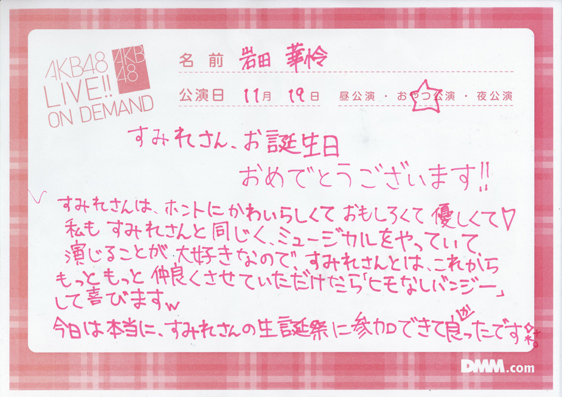 AKB48
LIVE!!
ON DEMAND
AKB
48
名前 岩田 華怜
公演日 11月 19日 昼公演・おやつ公演・夜公演
すみれさん、お誕生日
おめでとうございます!!
すみれさんは、ホントにかわいらしくて おもしろくて 優しくて♡
私も すみれさんと同じく、ミュージカルをやっていて
演じることが、大好きなので、すみれさんとは、これから
もっともっと 仲良くさせていただけたら「ヒモなしバンジー」
して喜びますw
今日は本当に、すみれさんの生誕祭に参加できて良ったです
DMM.com